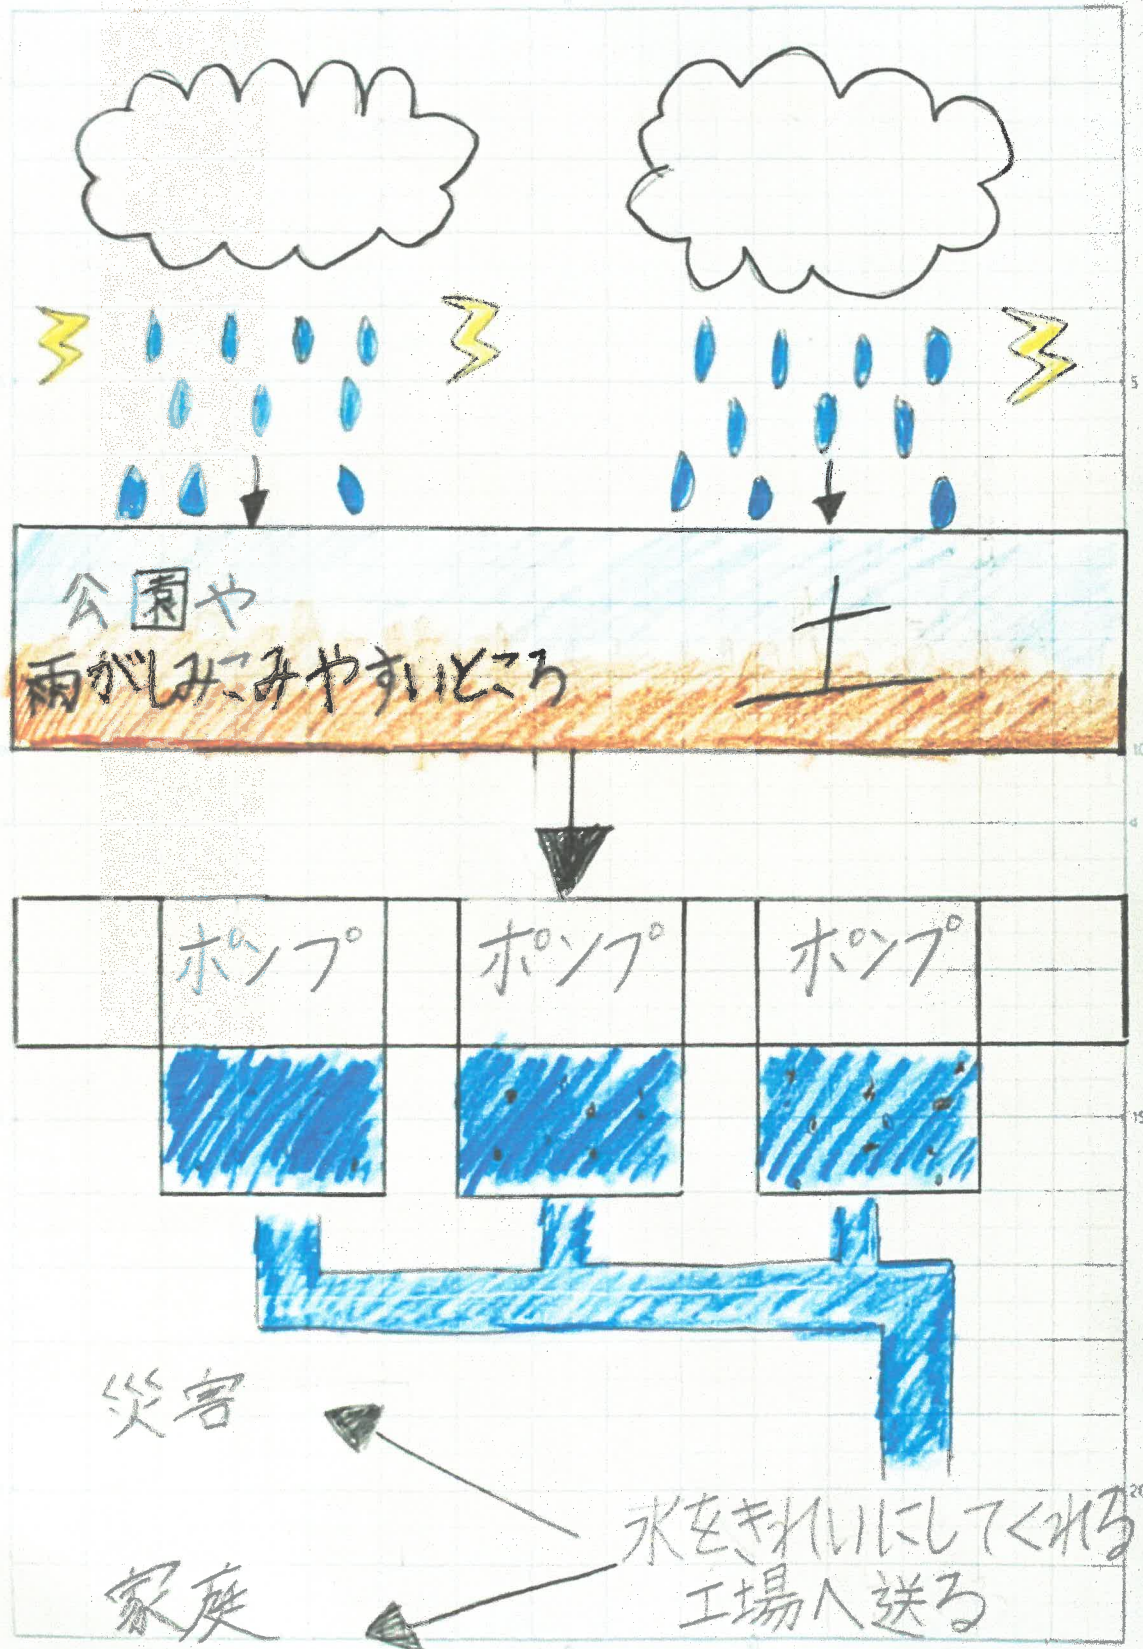 公園や
雨がしみこみやすいところ
土
ポンプ
ポンプ
ポンプ
災害
水をきれいにしてくれる
工場へ送る
家庭
5
10
15
20